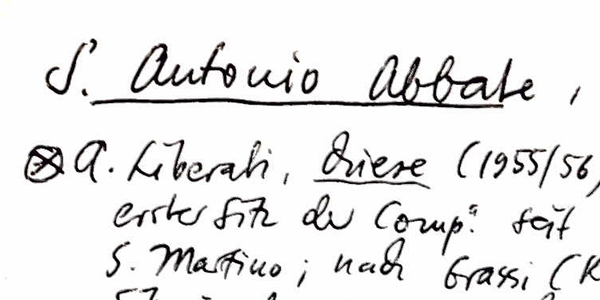 S. Antonio Abbate,
⊗ A. Liberati, Chiese (1955/56,
erster Sitz der Comp.: seit
S. Martino; nach Grassi (